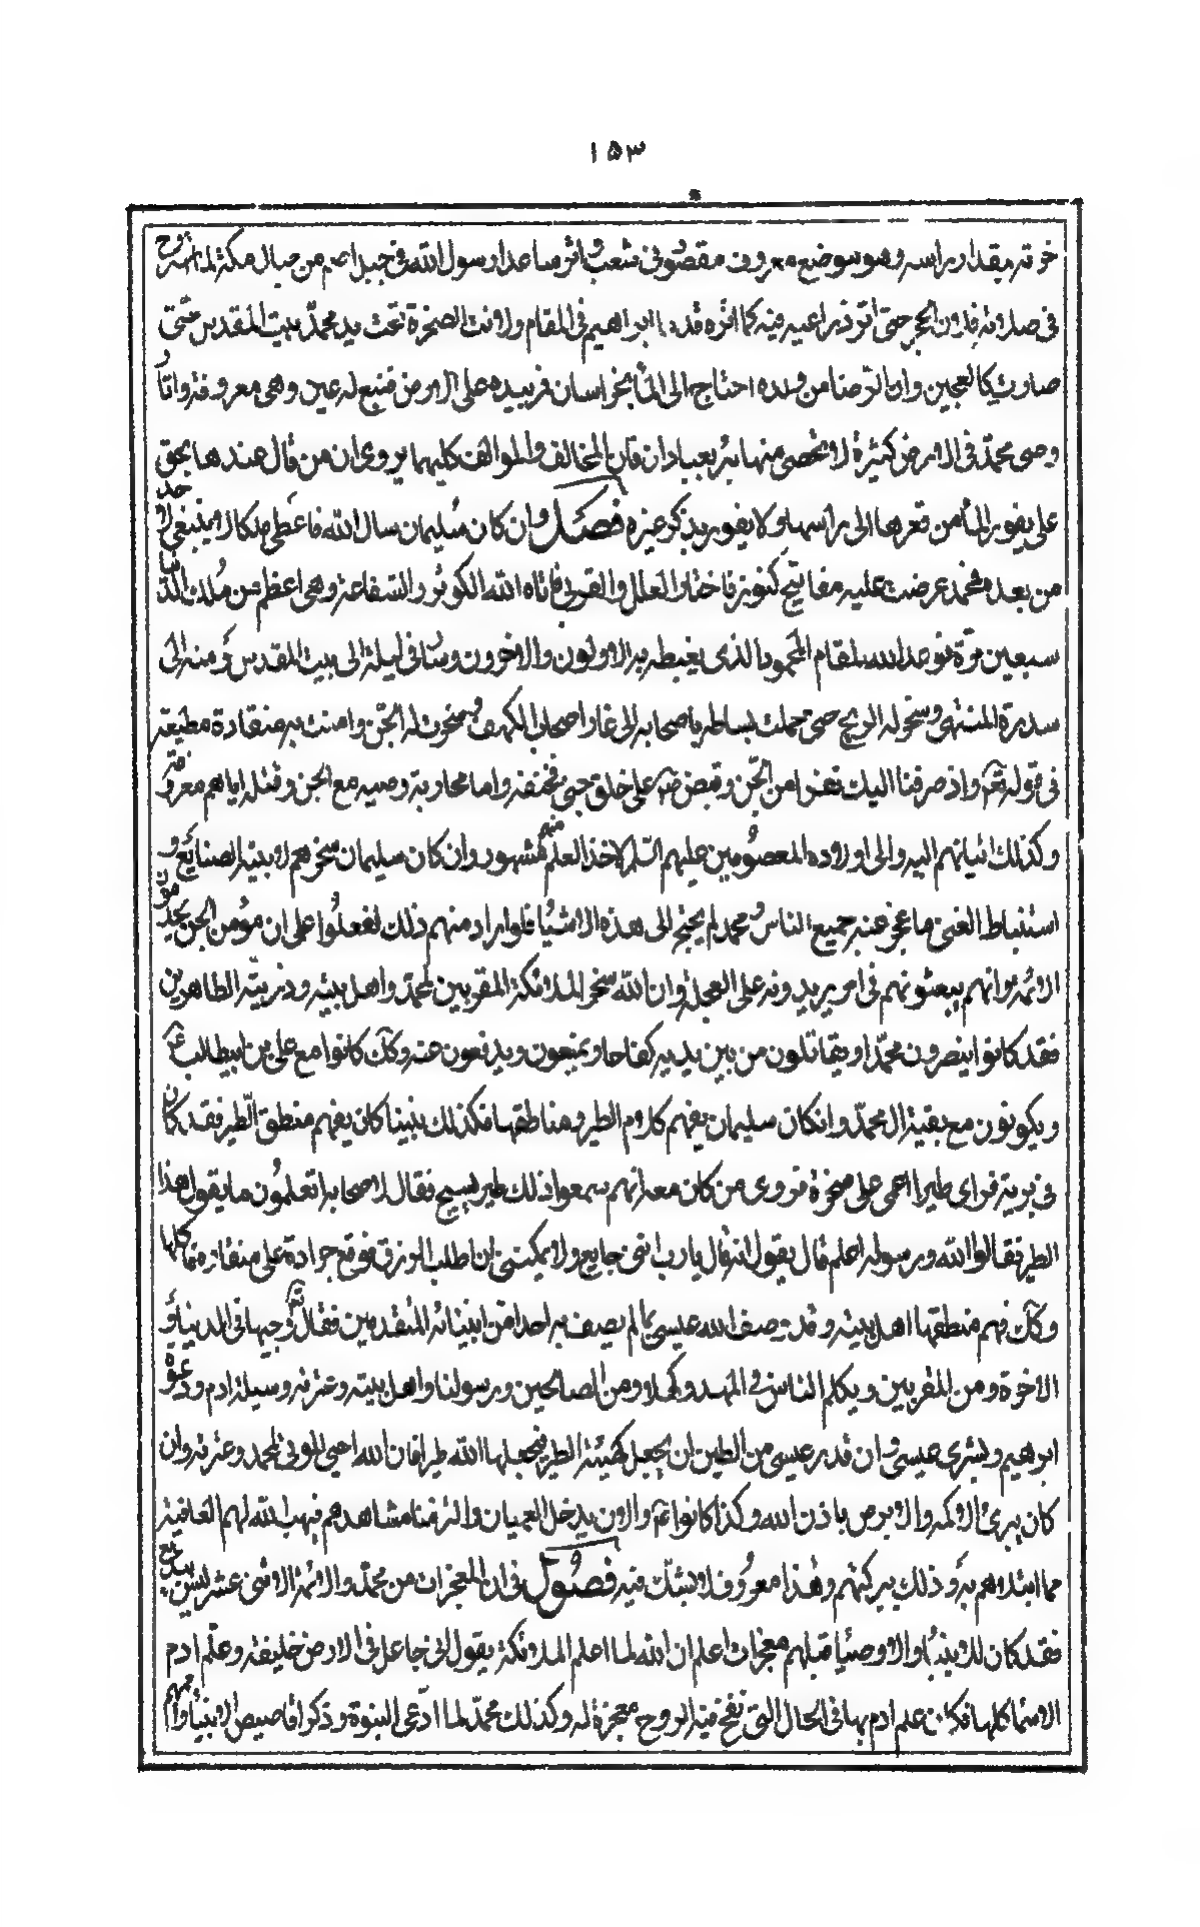 ١٥٣
خرقته بمقدار راسه وهو موضع معروف مقصود في شعب واثر ساعدا رسول الله في جبل اصم من جبال مكة لما استروح
في صلاته فلان الحجر حتى اثر ذراعيه فيه كما اثره قدما ابراهيم في المقام ولانت الصخرة تحت يد محمد ببيت المقدس حتى
صارت كالعجين وان الرضا من ولده احتاج الى الماء بخراسان فربيده على الارض فنبع له عين وهي معروفة واثار
وصي محمد في الارض كثيرة لا تحصى منها بئر بعبادان فان المخالف والموالف كليهما يروي ان من قال عندها بحق
علي يفور الماء من قعرها الى راسها ولا يفور بذكر غيره فصل وان كان سليمان سال الله فاعطي ملكا لا ينبغي لاحد
من بعده فمحمد عرضت عليه مفاتيح كنوز فاختار التقلل والقربى فاتاه الله الكوثر والشفاعة وهي اعظم من ملك الدنيا
سبعين مرة فوعد الله المقام المحمود الذي يغبطه به الاولون والاخرون وسار في ليلة الى بيت المقدس ومنه الى
سدرة المنتهى وسخر له الريح حتى حملت بساطه باصحابه الى غار اصحاب الكهف وسخرت له الجن وامنت به منقادة مطيعة
في قوله تعالى واذ صرفنا اليك نفرا من الجن وقبض على خلق جني فخنقه واما محاربة وصيه مع الجن وقتله اياهم معروفة
وكذلك اتيانهم اليه والى اولاده المعصومين عليهم السلام لاخذ العلم منهم مشهور وان كان سليمان سخرهم لابنية الصنايع و
استنباط القنى ما عجز عنه جميع الناس ومحمد لم يحتج الى هذه الاشياء فلو اراد منهم ذلك لفعلوا على ان مؤمن الجن يخدمون
الائمة وانهم يبعثونهم في امر يريدونه على العجلة وان الله سخر الملائكة المقربين لمحمد واهل بيته وذريته الطاهرين
فقد كانوا ينصرون محمدا ويقاتلون من بين يديه كفاحا ويمنعون ويدفعون عنه وكك كانوا مع علي بن ابيطالب
ويكونون مع بقية ال محمد وان كان سليمان يفهم كلام الطير ومناطقها فكذلك نبينا كان يفهم منطق الطير فقد كان
في برية فراى طيرا اعمى على صخرة فروى من كان معه انهم سمعوا ذلك طير يسبح فقال لاصحابه اتعلمون ما يقول هذا
الطير فقالوا الله ورسوله اعلم قال يقول انه قال يا رب انني جايع ولا يمكنني ان اطلب الرزق فوقع جرادة على منقاره فاكلها
وكك فهم منطقها اهل بيته وقد وصف الله عيسى بما لم يصف به احدا من انبيائه المتقدمين فقال تعالى وجيها في الدنيا و
الاخرة ومن المقربين ويكلم الناس في المهد وكهلا ومن الصالحين ورسولنا واهل بيته وعترته وسيلة ادم ودعوة
ابراهيم وبشرى عيسى وان قدر عيسى من الطين ان يجعل كهيئة الطير فيجعلها الله طيرا فان الله احيى الموتى لمحمد وعترته وان
كان يبرئ الاكمه والابرص باذن الله وكذا كانوا والان يدخل العميان والزمنا مشاهدهم فيهب الله لهم العافية
مما ابتلاهم به وذلك ببركتهم وهذا معروف لا يشك فيه فصول في ان المعجزات من محمد والائمة الاثنى عشر ليس ببديع
فقد كان للانبياء والاوصياء قبلهم معجزات اعلم ان الله لما اعلم الملائكة يقول اني جاعل في الارض خليفة وعلم ادم
الاسماء كلها فكان علم ادم بها في الحال التي نفخ فيه الروح معجزة له وكذلك محمد لما ادعى النبوة وذكر اقاصيص الانبياء واممهم